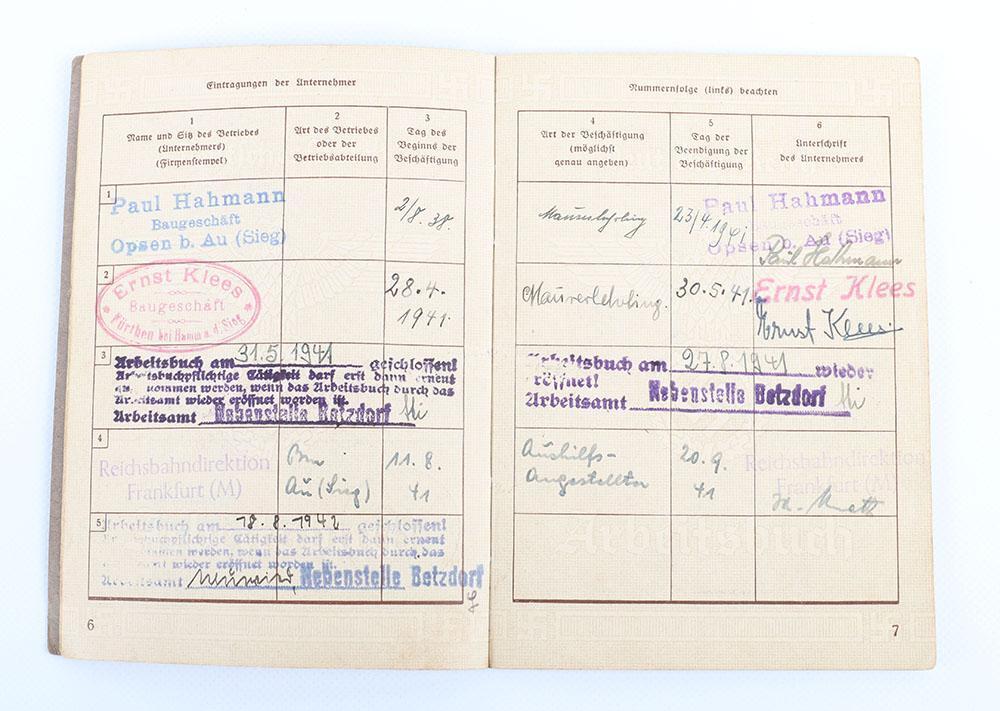 Eintragungen der Unternehmer
1
Name und Sitz des Betriebes
(Unternehmers)
(Firmenstempel)
2
Art des Betriebes
oder der
Betriebsabteilung
3
Tag des
Beginns der
Beschäftigung
1
Paul Hahmann
Baugeschäft
Opsen b. Au (Sieg)
2/8. 38.
2
Ernst Klees
Baugeschäft
Fürthen bei Hamm a. d. Sieg
28.4.
1941.
3
Arbeitsbuch am 31.5. 1941 geschlossen!
Arbeitsbuchpflichtige Tätigkeit darf erst dann erneut
kommen werden, wenn das Arbeitsbuch durch das
Arbeitsamt wieder eröffnet worden ist.
Arbeitsamt Nebenstelle Betzdorf
4
Reichsbahndirektion
Frankfurt (M)
Au (Sieg)
11.8.
41
5
Arbeitsbuch am 18.8.1942 geschlossen!
buchpflichtige Tätigkeit darf erst dann erneut
kommen werden, wenn das Arbeitsbuch durch das
amt wieder eröffnet worden ist.
Arbeitsamt Neuwied Nebenstelle Betzdorf
6
Nummernfolge (links) beachten
4
Art der Beschäftigung
(möglichst
genau angeben)
5
Tag der
Beendigung der
Beschäftigung
6
Unterschrift
des Unternehmers
Maurerlehrling
23/4.1941
Paul Hahmann
Baugeschäft
Opsen b. Au (Sieg)
Paul Hahmann
Maurerlehrling.
30.5.41.
Ernst Klees
Ernst Klees
Arbeitsbuch am 27.8.1941 wieder
eröffnet!
Arbeitsamt Nebenstelle Betzdorf
Aushilfs-
Angestellter
20.9.
41
Reichsbahndirektion
Frankfurt (M)
Arbeitsbuch
7